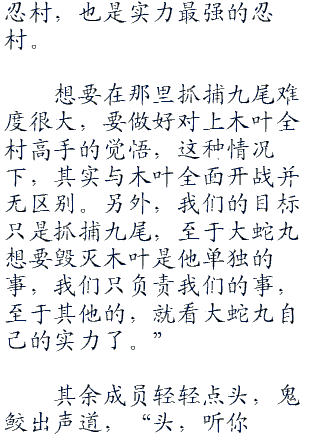 忍村，也是实力最强的忍
村。
想要在那里抓捕九尾难
度很大，要做好对上木叶全
村高手的觉悟，这种情况
下，其实与木叶全面开战并
无区别。另外，我们的目标
只是抓捕九尾，至于大蛇丸
想要毁灭木叶是他单独的
事，我们只负责我们的事，
至于其他的，就看大蛇丸自
己的实力了。”
其余成员轻轻点头，鬼
鲛出声道，“头，听你